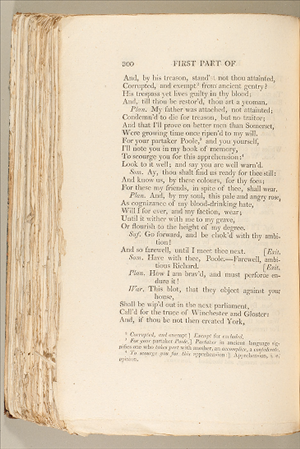 200 FIRST PART OF
And, by his treason, stand'st not thou attainted,
Corrupted, and exempt³ from ancient gentry?
His trespass yet lives guilty in thy blood;
And, till thou be restor'd, thou art a yeoman.
Plan. My father was attached, not attainted;
Condemn'd to die for treason, but no traitor;
And that I'll prove on better men than Somerset,
Were growing time once ripen'd to my will.
For your partaker Poole,⁴ and you yourself,
I'll note you in my book of memory,
To scourge you for this apprehension:⁵
Look to it well; and say you are well warn'd.
Som. Ay, thou shalt find us ready for thee still:
And know us, by these colours, for thy foes;
For these my friends, in spite of thee, shall wear.
Plan. And, by my soul, this pale and angry rose,
As cognizance of my blood-drinking hate,
Will I for ever, and my faction, wear;
Until it wither with me to my grave,
Or flourish to the height of my degree.
Suf. Go forward, and be chok'd with thy ambi-
tion!
And so farewell, until I meet thee next. [Exit.
Som. Have with thee, Poole.—Farewell, ambi-
tious Richard. [Exit.
Plan. How I am brav'd, and must perforce en-
dure it!
War. This blot, that they object against your
house,
Shall be wip'd out in the next parliament,
Call'd for the truce of Winchester and Gloster:
And, if thou be not then created York,
³ Corrupted, and exempt] Exempt for excluded.
⁴ For your partaker Poole,] Partaker in ancient language sig-
nifies one who takes part with another, an accomplice, a confederate.
⁵ To scourge you for this apprehension:] Apprehension, i. e.
opinion.